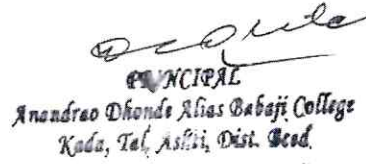 PRINCIPAL
Anandrao Dhonde Alias Babaji College
Kada, Tal, Ashti, Dist. Beed.